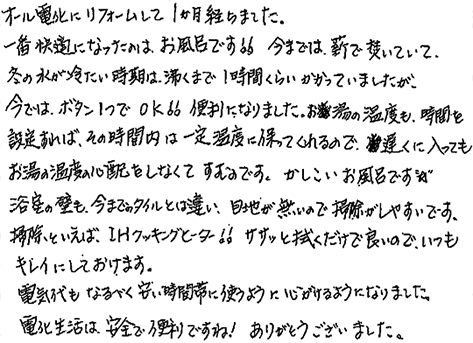 オール電化にリフォームして1か月経ちました。
一番快適になったのは、お風呂です!! 今までは、薪で焚いていて、
冬の水が冷たい時期は、沸くまで1時間くらいかかっていましたが、
今では、ボタン1つでOK!! 便利になりました。お湯の温度も、時間を
設定すれば、その時間内は一定温度に保ってくれるので、遅くに入っても
お湯の温度の心配をしなくてすむのです。かしこいお風呂です!!
浴室の壁も、今までのタイルとは違い、目地が無いので掃除がしやすいです。
掃除といえば、IHクッキングヒーター!! ササッと拭くだけで良いので、いつも
キレイにしておけます。
電気代もなるべく安い時間帯に使うように心がけるようになりました。
電化生活は、安全で便利ですね! ありがとうございました。